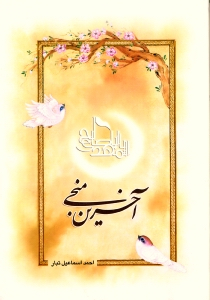 آخرین منجی
احمد اسماعیل تبار